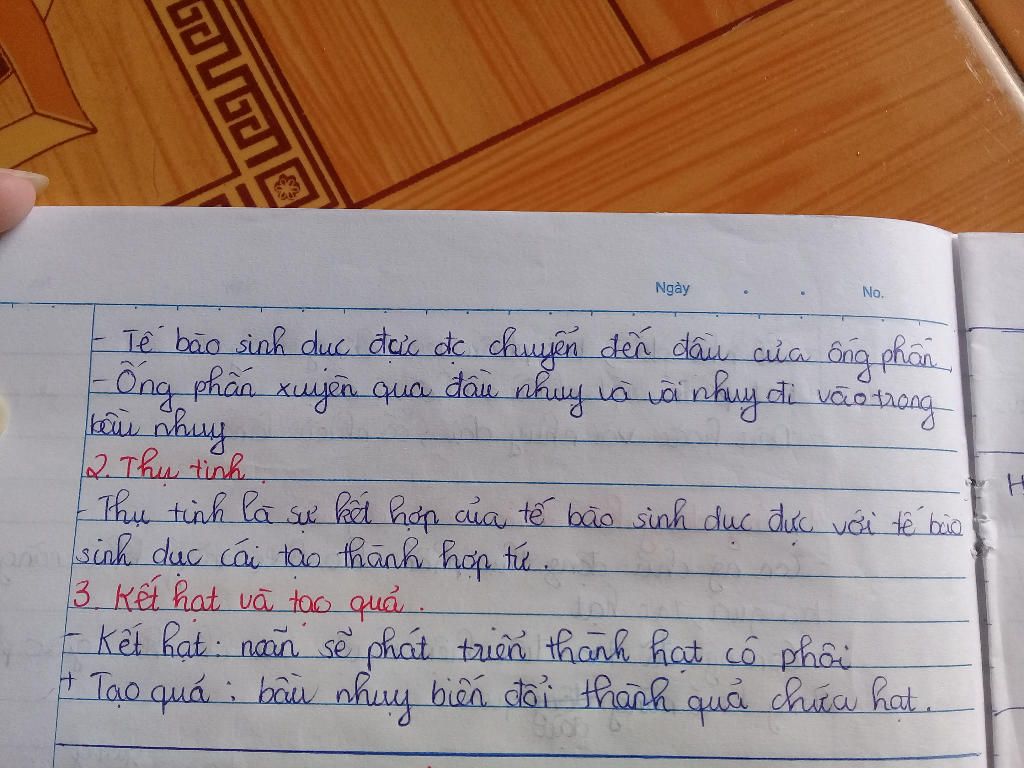 Ngày . . No.
- Tế bào sinh dục đực đc chuyển đến đầu của ống phấn
- Ống phấn xuyên qua đầu nhụy và vòi nhụy đi vào trong
bầu nhụy
2. Thụ tinh.
- Thụ tinh là sự kết hợp của tế bào sinh dục đực với tế bào
sinh dục cái tạo thành hợp tử.
3. Kết hạt và tạo quả.
- Kết hạt: noãn sẽ phát triển thành hạt có phôi
+ Tạo quả: bầu nhụy biến đổi thành quả chứa hạt.
H